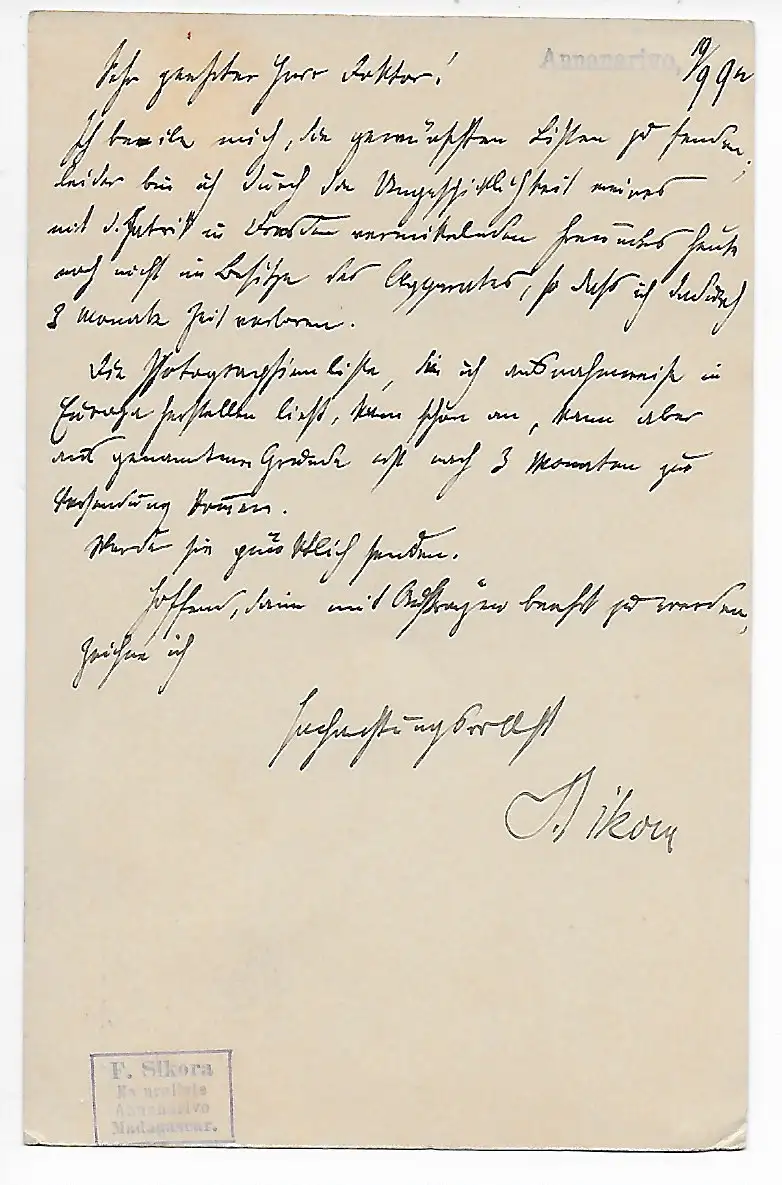 Annanarivo, 19/9 92
Sehr geehrter Herr Doktor!
Ich beeile mich, die gewünschten Listen zu senden;
leider bin ich durch die Ungeschicklichkeit meines
mit d. Fabrik in Dresden vermittelnden Freundes heute
noch nicht im Besitze des Apparates, so daß ich dadurch
3 Monate Zeit verloren.
Die Photographienliste, die ich ausnahmsweise in
Europa herstellen ließ, kam schon an, kann aber
aus genanntem Grunde erst nach 3 Monaten zur
Versendung kommen.
Werde sie pünktlich senden.
Hoffend, dann mit Aufträgen beehrt zu werden,
zeichne ich
hochachtungsvollst
F. Sikora
F. Sikora
Naturaliste
Annanarivo
Madagascar.